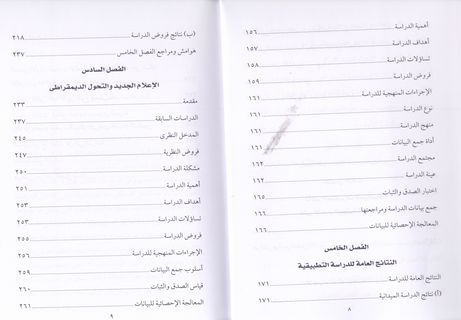 أهمية الدراسة ١٥٦
أهداف الدراسة ١٥٧
تساؤلات الدراسة ١٥٨
فروض الدراسة ١٥٩
الإجراءات المنهجية للدراسة ١٦١
نوع الدراسة ١٦١
منهج الدراسة ١٦١
أداة جمع البيانات ١٦١
مجتمع الدراسة ١٦٢
عينة الدراسة ١٦٢
اختبار الصدق والثبات ١٦٥
جمع بيانات الدراسة ومراجعتها ١٦٦
المعالجة الإحصائية للبيانات ١٦٦
الفصل الخامس
النتائج العامة للدراسة التطبيقية
النتائج العامة للدراسة ١٧١
(أ) نتائج الدراسة الميدانية ١٧١
٨
(ب) نتائج فروض الدراسة ٢١٨
هوامش ومراجع الفصل الخامس ٢٢٧
الفصل السادس
الإعلام الجديد والتحول الديمقراطى
مقدمة ٢٣٣
الدراسات السابقة ٢٣٧
المدخل النظرى ٢٤٥
فروض النظرية ٢٤٧
مشكلة الدراسة ٢٥٠
أهمية الدراسة ٢٥١
أهداف الدراسة ٢٥٣
تساؤلات الدراسة ٢٥٣
فروض الدراسة ٢٥٥
الإجراءات المنهجية للدراسة ٢٥٦
أسلوب جمع البيانات ٢٥٩
قياس الصدق والثبات ٢٦٠
المعالجة الإحصائية للبيانات ٢٦١
٩